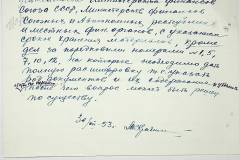 Министерства финансов
Союза ССР, Министерств финансов
Союзных и Автономных республик
и местных финорганов, с указанием
сроков хранения материалов, кроме
дел за порядковыми номерами № 1, 5,
7, 10, 12, на которые необходимо дать
полную расшифровку, т.е. указать
документов и их содержание,
после чего вопрос может быть решен
по существу.
53 г.